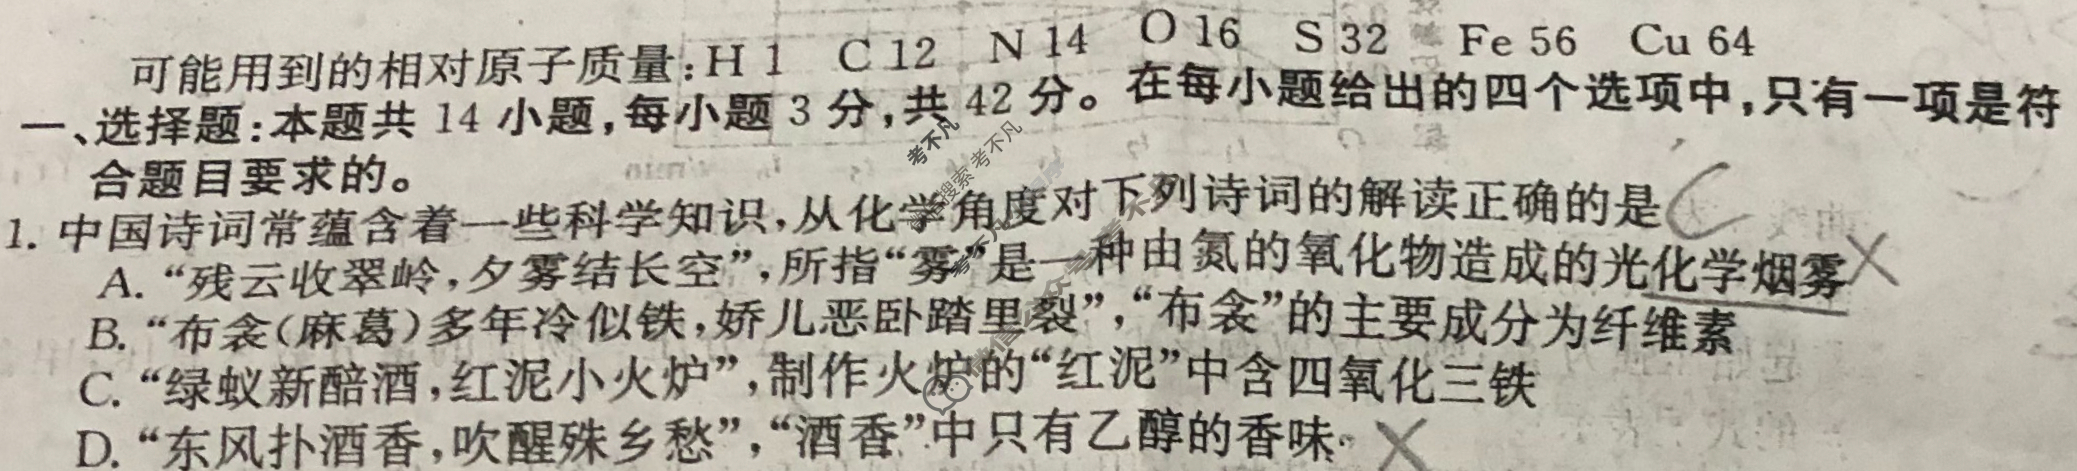 可能用到的相对原子质量:H 1 C 12 N 14 O 16 S 32 Fe 56 Cu 64
一、选择题:本题共 14 小题,每小题 3 分,共 42 分。在每小题给出的四个选项中,只有一项是符
合题目要求的。
1. 中国诗词常蕴含着一些科学知识,从化学角度对下列诗词的解读正确的是 C
A. “残云收翠岭,夕雾结长空”,所指“雾”是一种由氮的氧化物造成的光化学烟雾 X
B. “布衾(麻葛)多年冷似铁,娇儿恶卧踏里裂”,“布衾”的主要成分为纤维素
C. “绿蚁新醅酒,红泥小火炉”,制作火炉的“红泥”中含四氧化三铁
D. “东风扑酒香,吹醒殊乡愁”,“酒香”中只有乙醇的香味。 X
考不凡
搜索 考不凡